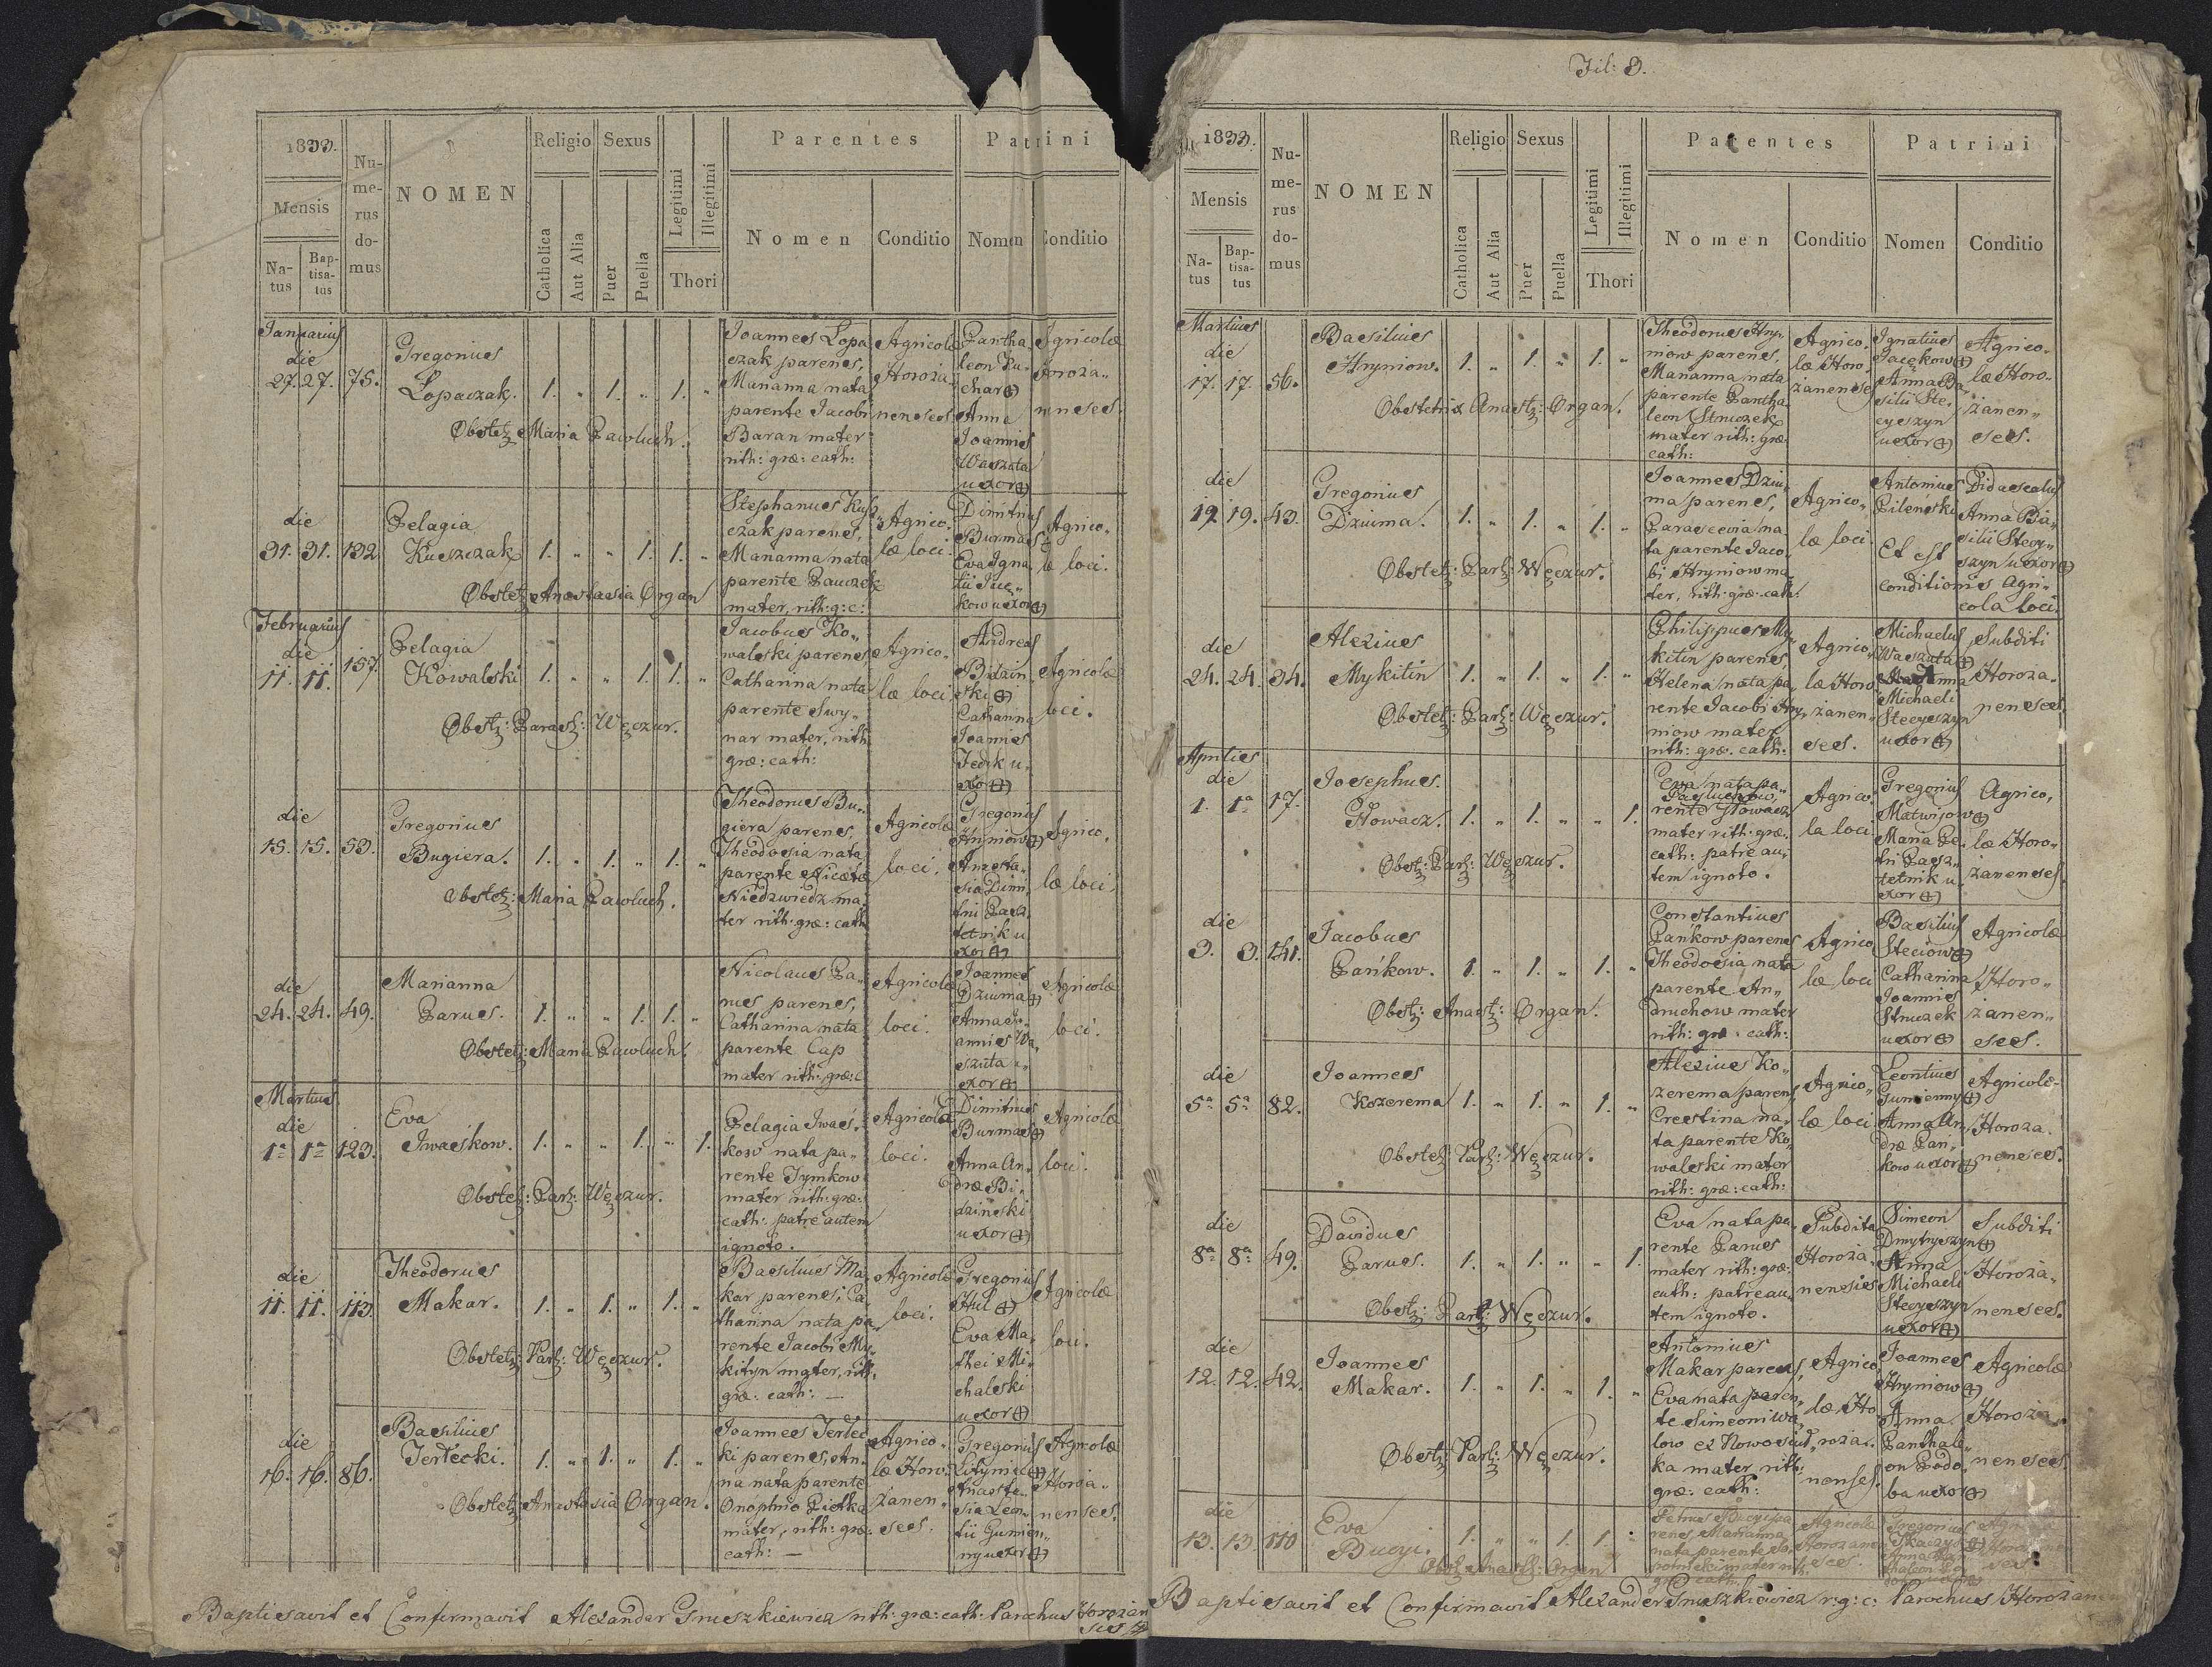 1833.
Mensis
Na-
tus
Bap-
tisa-
tus
Nu-
me-
rus
do-
mus
NOMEN
Religio
Catholica
Aut Alia
Sexus
Puer
Puella
Legitimi
Illegitimi
Thori
Parentes
Nomen
Conditio
Patrini
Nomen
Conditio
Januarius
die
27. 27. 75.
Gregorius
Lopaczak. 1. „ 1. „ 1. „
Obstetz Maria Pawluch.
Joannes Lopa
czak parens,
Marianna nata
parente Jacobi
Baran mater
rith: græ: cath:
Agricolæ
Horoża
nenses
Pantha
leon Pu
char
Anna
Joannis
Waszuta
uxor
Agricolæ
Horoża„
nenses.
die
31. 31. 132
Pelagia
Kuszczak 1. „ „ 1. 1. „
Obstetz Anastasia Organ
Stephanus Kusz„
czak parens,
Marianna nata
parente Pauczek
mater, rith: g: c:
Agrico„
læ loci.
Dimitrius
Burmas
Eva Igna
tii Jac„
kow uxor
Agrico„
læ loci.
Februarius
die
11. 11. 157.
Pelagia
Kowalski 1. „ „ 1. 1. „
Obstz: Parasz: Węczur.
Jacobus Ko„
walski parens,
Catharina nata
parente Swy„
nar mater, rith
græ: cath:
Agrico„
læ loci.
Andreas
Bidzin
ski
Catharina
Joannis
Fedik u„
xor
Agricolæ
loci.
die
15. 15. 53.
Gregorius
Bugiera. 1. „ 1. „ 1. „
Obstetz: Maria Pawluch.
Theodorus Bu„
giera parens,
Theodosia nata
parente Nicetæ
Niedzwiedz ma
ter rith: græ: cath
Agricolæ
loci.
Gregorius
Hryniow
Anasta„
sia Dimi
trii Pasz
tetnik u
xor
Agrico„
læ loci.
die
24. 24. 49.
Marianna
Parus. 1. „ „ 1. 1. „
Obstetz: Maria Pawluch.
Nicolaus Pa„
rus parens,
Catharina nata
parente Cap
mater rith: græ: c
Agricolæ
loci.
Joannes
Dziuma
Anna Jo„
annis Wa„
szuta u„
xor
Agricolæ
loci.
Martius
die
1ª 1ª 123.
Eva
Iwaśkow. 1. „ „ 1. „ 1.
Obstetz: Parz: Węczur.
Pelagia Iwaś„
kow nata pa„
rente Tymkow
mater rith: græ:
cath: patre autem
ignoto.
Agricolæ
loci.
Dimitrius
Burmas
Anna An„
dræ Bi„
dzinski
uxor
Agricolæ
loci.
die
11. 11. 113.
Theodorus
Makar. 1. „ 1. „ 1. „
Obstetz: Parz: Węczur.
Basilius Ma„
kar parens, Ca„
tharina nata pa„
rente Jacobi My„
kityn mater, rith.
græ: cath: —
Agricolæ
loci.
Gregorius
Hul
Eva Ma„
thei Mi„
chalski
uxor
Agricolæ
loci.
die
16. 16. 86.
Basilius
Terlecki. 1. „ 1. „ 1. „
Obstetz: Anastasia Organ.
Joannes Terlec
ki parens, An„
na nata parente
Onophrio Pietka
mater, rith: græ:
cath: —
Agrico„
læ Horo„
żanen„
ses.
Gregorius
Litynia
Anasta„
sia Leon„
tii Gumien„
ny uxor
Agricolæ
Horoża„
nenses.
Baptisavit et Confirmavit Alexander Gruszkiewicz rith: græ: cath: Parochus Horożan
sis
Fil: 3.
1833.
Mensis
Na-
tus
Bap-
tisa-
tus
Nu-
me-
rus
do-
mus
NOMEN
Religio
Catholica
Aut Alia
Sexus
Puer
Puella
Legitimi
Illegitimi
Thori
Parentes
Nomen
Conditio
Patrini
Nomen
Conditio
Martius
die
17. 17. 56.
Basilius
Hryniow. 1. „ 1. „ 1. „
Obstetrix Anastz: Organ.
Theodorus Hry„
niow parens,
Marianna nata
parente Pantha
leon Struczek
mater rith: græ:
cath:
Agrico„
læ Horo„
żanenses
Ignatius
Jackow
Anna Ba„
silii Ste„
cyszyn
uxor
Agrico„
læ Horo„
żanen„
ses.
die
19. 19. 43.
Gregorius
Dziuma. 1. „ 1. „ 1. „
Obstetz: Parz: Węczur.
Joannes Dziu„
ma parens,
Parascevia na
ta parente Jaco„
bi Hryniow ma„
ter, rith: græ: cath:
Agrico„
læ loci.
Antonius
Pilenski
Et est
conditionis Agri„
cola loci.
Didascalus
Anna Ba„
silii Stecy„
szyn uxor
die
24. 24. 34.
Alexius
Mykitin 1. „ 1. „ 1. „
Obstetz: Parz: Węczur.
Philippus My„
kitin parens,
Helena nata pa„
rente Jacobi Hry„
niow mater
rith: græ: cath:
Agrico„
læ Horo„
żanen„
ses.
Michaelus
Waszuta
Anna
Michaeli
Stecyszyn
uxor
Subditi
Horoża„
nenses
Aprilis
die
1. 1ª 17.
Josephus.
Głowacz. 1. „ 1. „ „ 1.
Obst: Parz: Węczur.
Eva nata pa„
rente Głowacz
mater rith: græ:
cath: patre au„
tem ignoto.
Agrico„
la loci
Gregorius
Matwijow
Maria Pe„
tri Pasz„
tetnik u„
xor
Agrico„
læ Horo„
żanenses.
die
3. 3. 141.
Jacobus
Pańkow. 1. „ 1. „ 1. „
Obstz: Anastz: Organ.
Constantius
Pańkow parens
Theodosia nata
parente An„
druchow mater
rith: græ: cath:
Agrico„
læ loci
Basilius
Steciow
Catharina
Joannis
Struczek
uxor
Agricolæ
Horo„
żanen„
ses.
die
5ª 5ª 82.
Joannes
Kozerema 1. „ 1. „ 1. „
Obstetz: Parz: Węczur.
Alexius Ko„
zerema parens,
Crestina na„
ta parente Ko„
walski mater
rith: græ: cath:
Agrico„
læ loci
Leontius
Gumienny
Anna An„
dræ Pań„
kow uxor
Agricolæ
Horoża„
nenses.
die
8ª 8ª 49.
Davidus
Parus. 1. „ 1. „ „ 1.
Obstz: Parz: Węczur.
Eva nata pa„
rente Parus
mater rith: græ:
cath: patre au„
tem ignoto.
Subdita
Horoża„
nensis
Simeon
Dmytryszyn
Anna
Michaeli
Stecyszyn
uxor
Subditi
Horoża„
nenses.
die
12. 12. 42.
Joannes
Makar. 1. „ 1. „ 1. „
Obstz: Parz: Węczur.
Antonius
Makar parens,
Eva nata paren„
te Simeoni Wa„
low ex Nowosiuł„
ka mater rith:
græ: cath:
Agrico„
læ Ho„
roża„
nenses.
Joannes
Hryniow
Anna
Panthale„
on Podo„
ba uxor
Agricolæ
Horoża„
nenses
die
13. 13. 110
Eva
Bucyi. 1. „ „ 1. 1. „
Obstz Anastz: Organ
Petrus Bucyi pa„
rens, Marianna
nata parente
mater rith.
græ: cath:
Agricolæ
Horożanen
ses.
Gregorius
Anna
Baptisavit et Confirmavit Alexander Gruszkiewicz r: g: c: Parochus Horożan